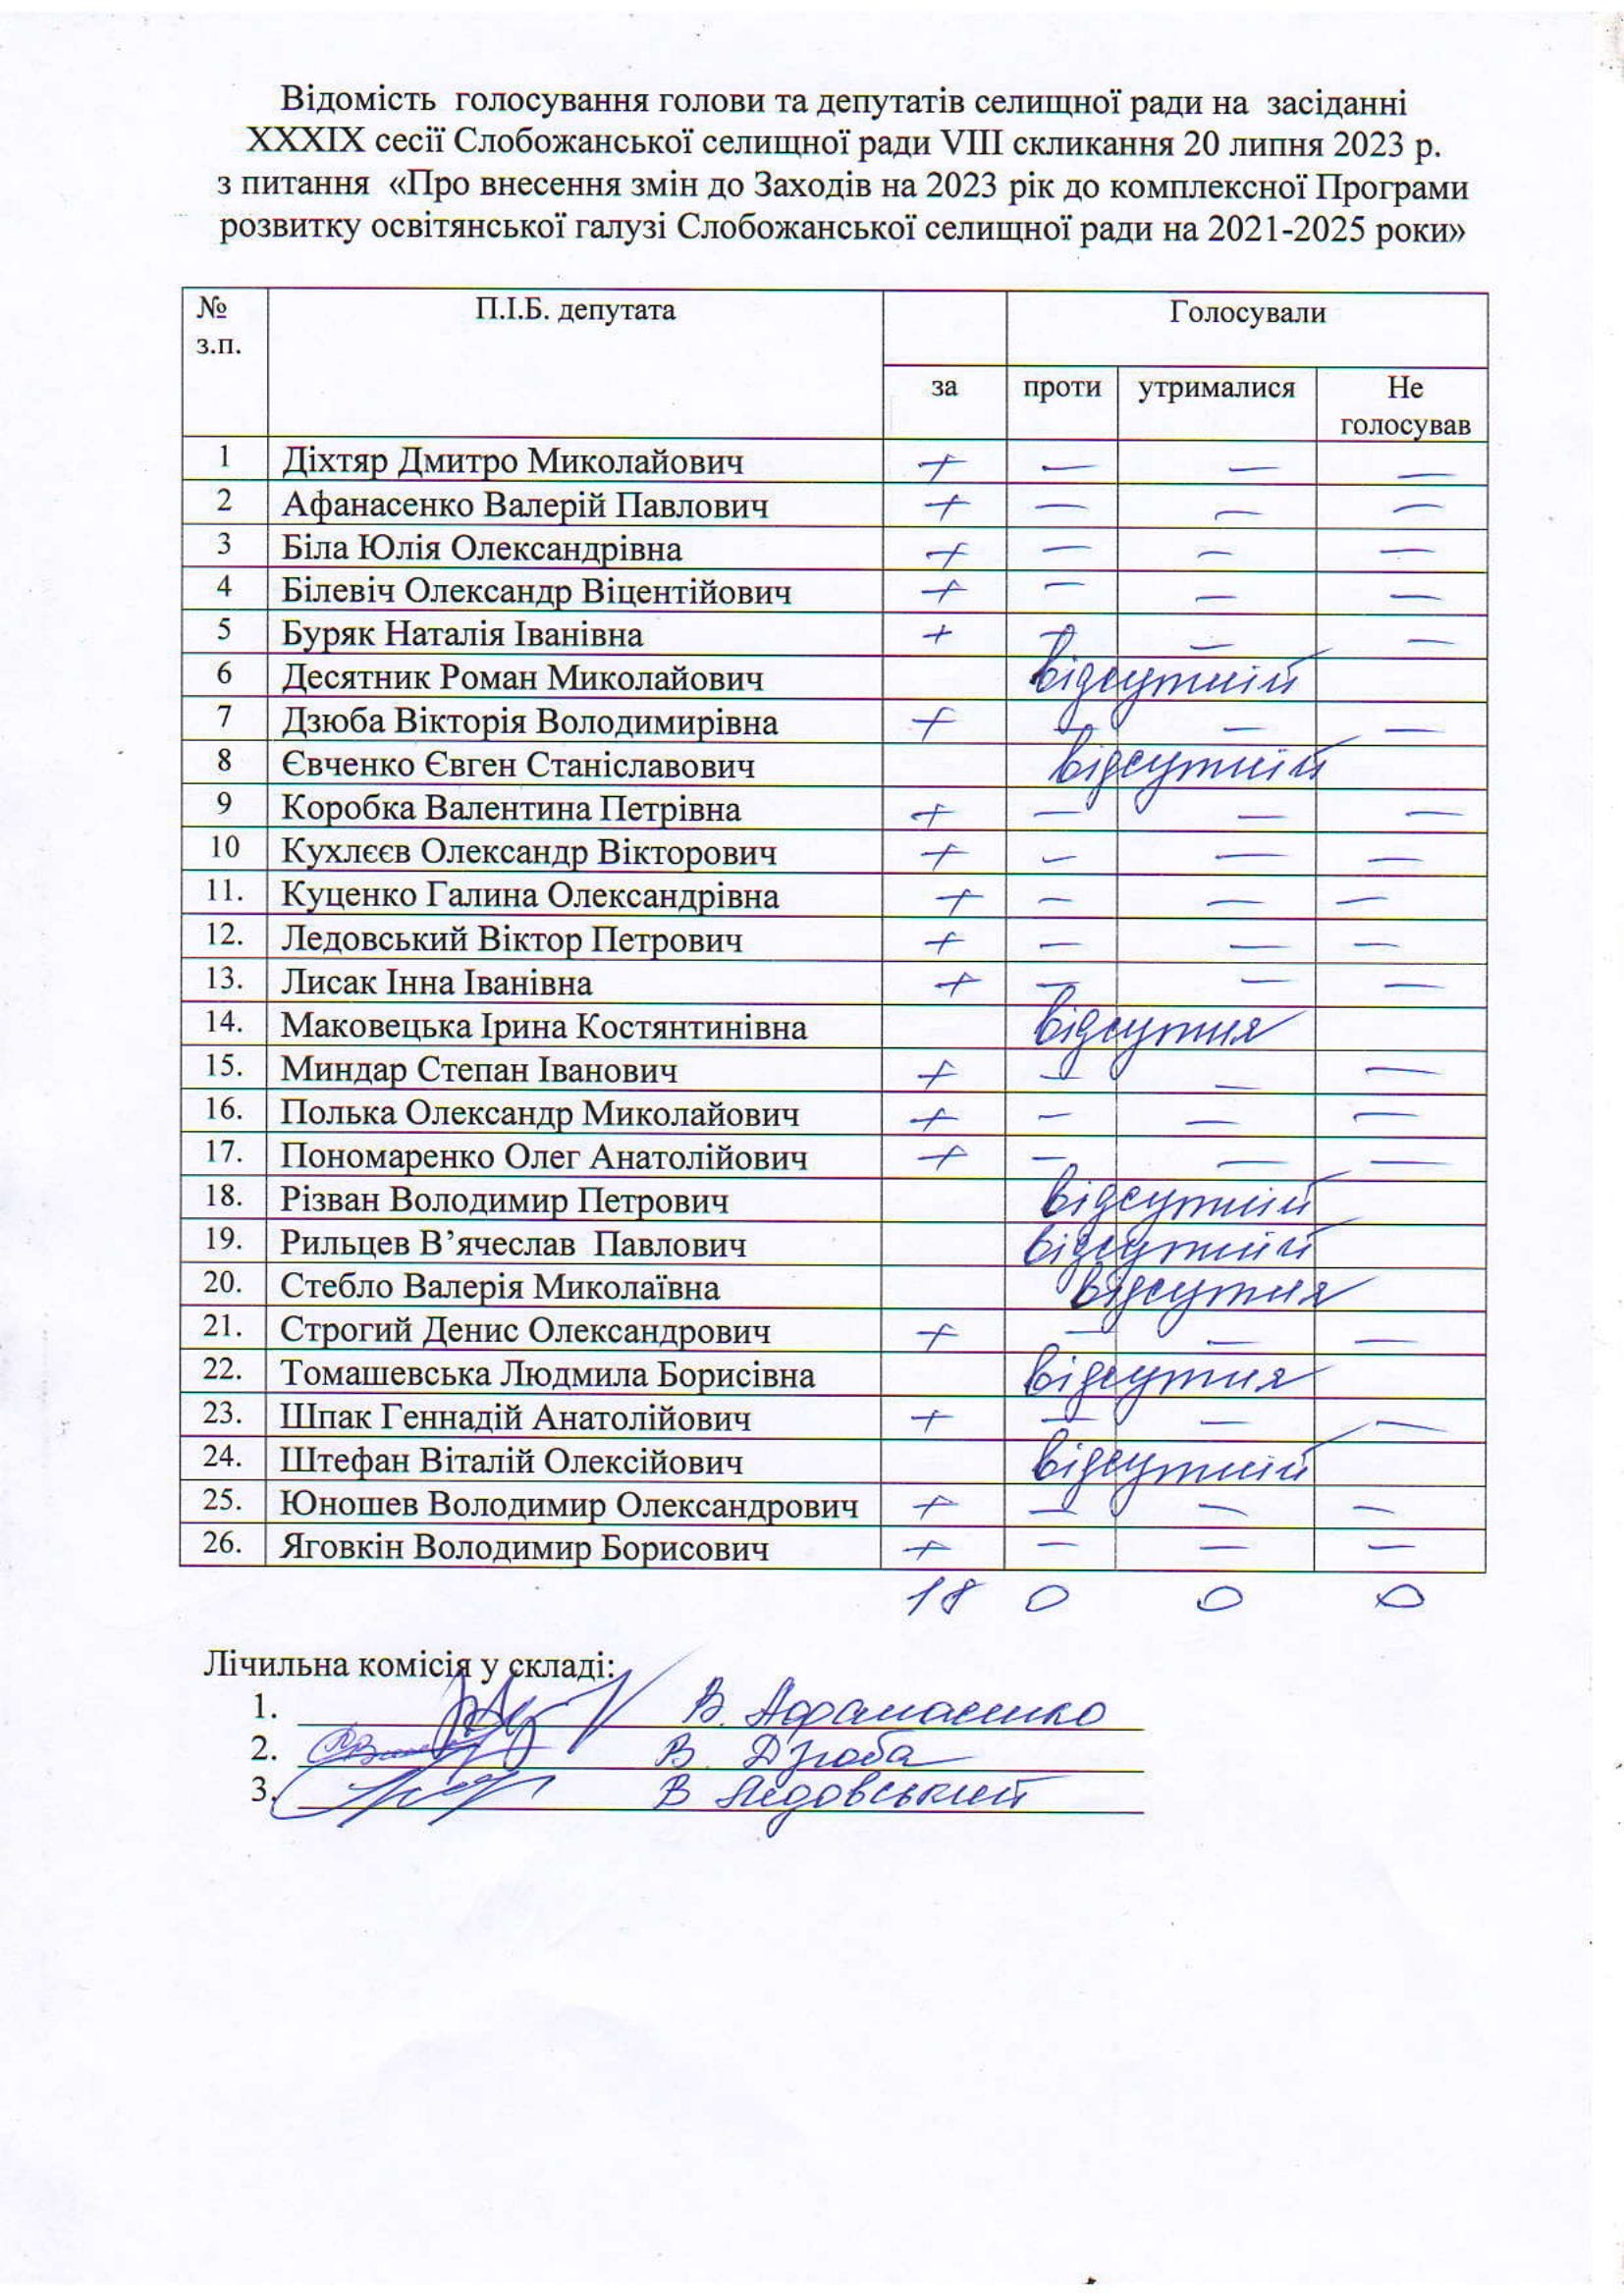 Відомість голосування голови та депутатів селищної ради на засіданні
XXXIX сесії Слобожанської селищної ради VIII скликання 20 липня 2023 р.
з питання «Про внесення змін до Заходів на 2023 рік до комплексної Програми
розвитку освітянської галузі Слобожанської селищної ради на 2021-2025 роки»
№ з.п. П.І.Б. депутата Голосували
за проти утрималися Не голосував
1 Діхтяр Дмитро Миколайович + — — —
2 Афанасенко Валерій Павлович + — — —
3 Біла Юлія Олександрівна + — — —
4 Білевіч Олександр Віцентійович + — — —
5 Буряк Наталія Іванівна + — — —
6 Десятник Роман Миколайович відсутній
7 Дзюба Вікторія Володимирівна + — — —
8 Євченко Євген Станіславович відсутній
9 Коробка Валентина Петрівна + — — —
10 Кухлєєв Олександр Вікторович + — — —
11. Куценко Галина Олександрівна + — — —
12. Ледовський Віктор Петрович + — — —
13. Лисак Інна Іванівна + — — —
14. Маковецька Ірина Костянтинівна відсутня
15. Миндар Степан Іванович + — — —
16. Полька Олександр Миколайович + — — —
17. Пономаренко Олег Анатолійович + — — —
18. Різван Володимир Петрович відсутній
19. Рильцев В’ячеслав Павлович відсутній
20. Стебло Валерія Миколаївна відсутня
21. Строгий Денис Олександрович + — — —
22. Томашевська Людмила Борисівна відсутня
23. Шпак Геннадій Анатолійович + — — —
24. Штефан Віталій Олексійович відсутній
25. Юношев Володимир Олександрович + — — —
26. Яговкін Володимир Борисович + — — —
18 0 0 0
Лічильна комісія у складі:
1. В. Афанасенко
2. В. Дзюба
3. В Ледовський